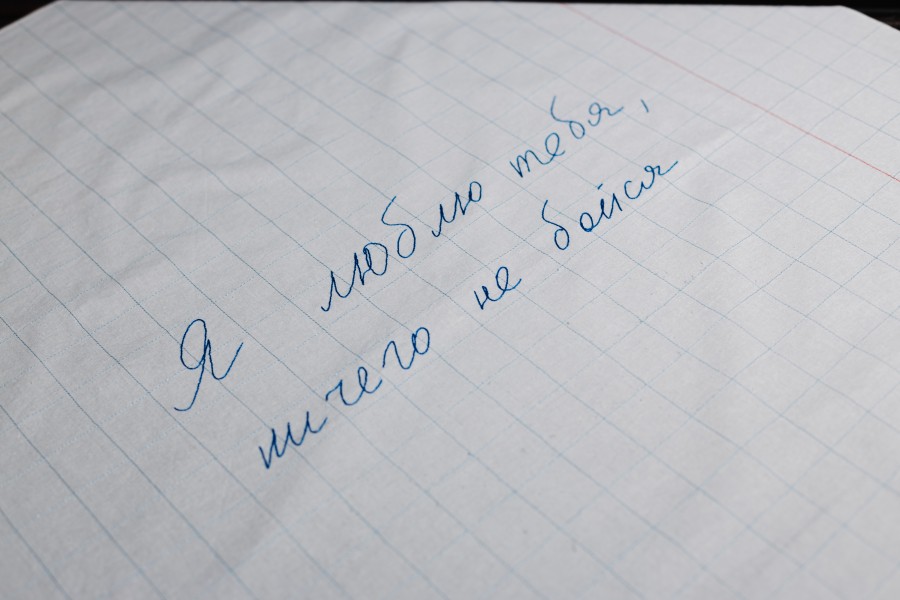 Я люблю тебя,
ничего не бойся